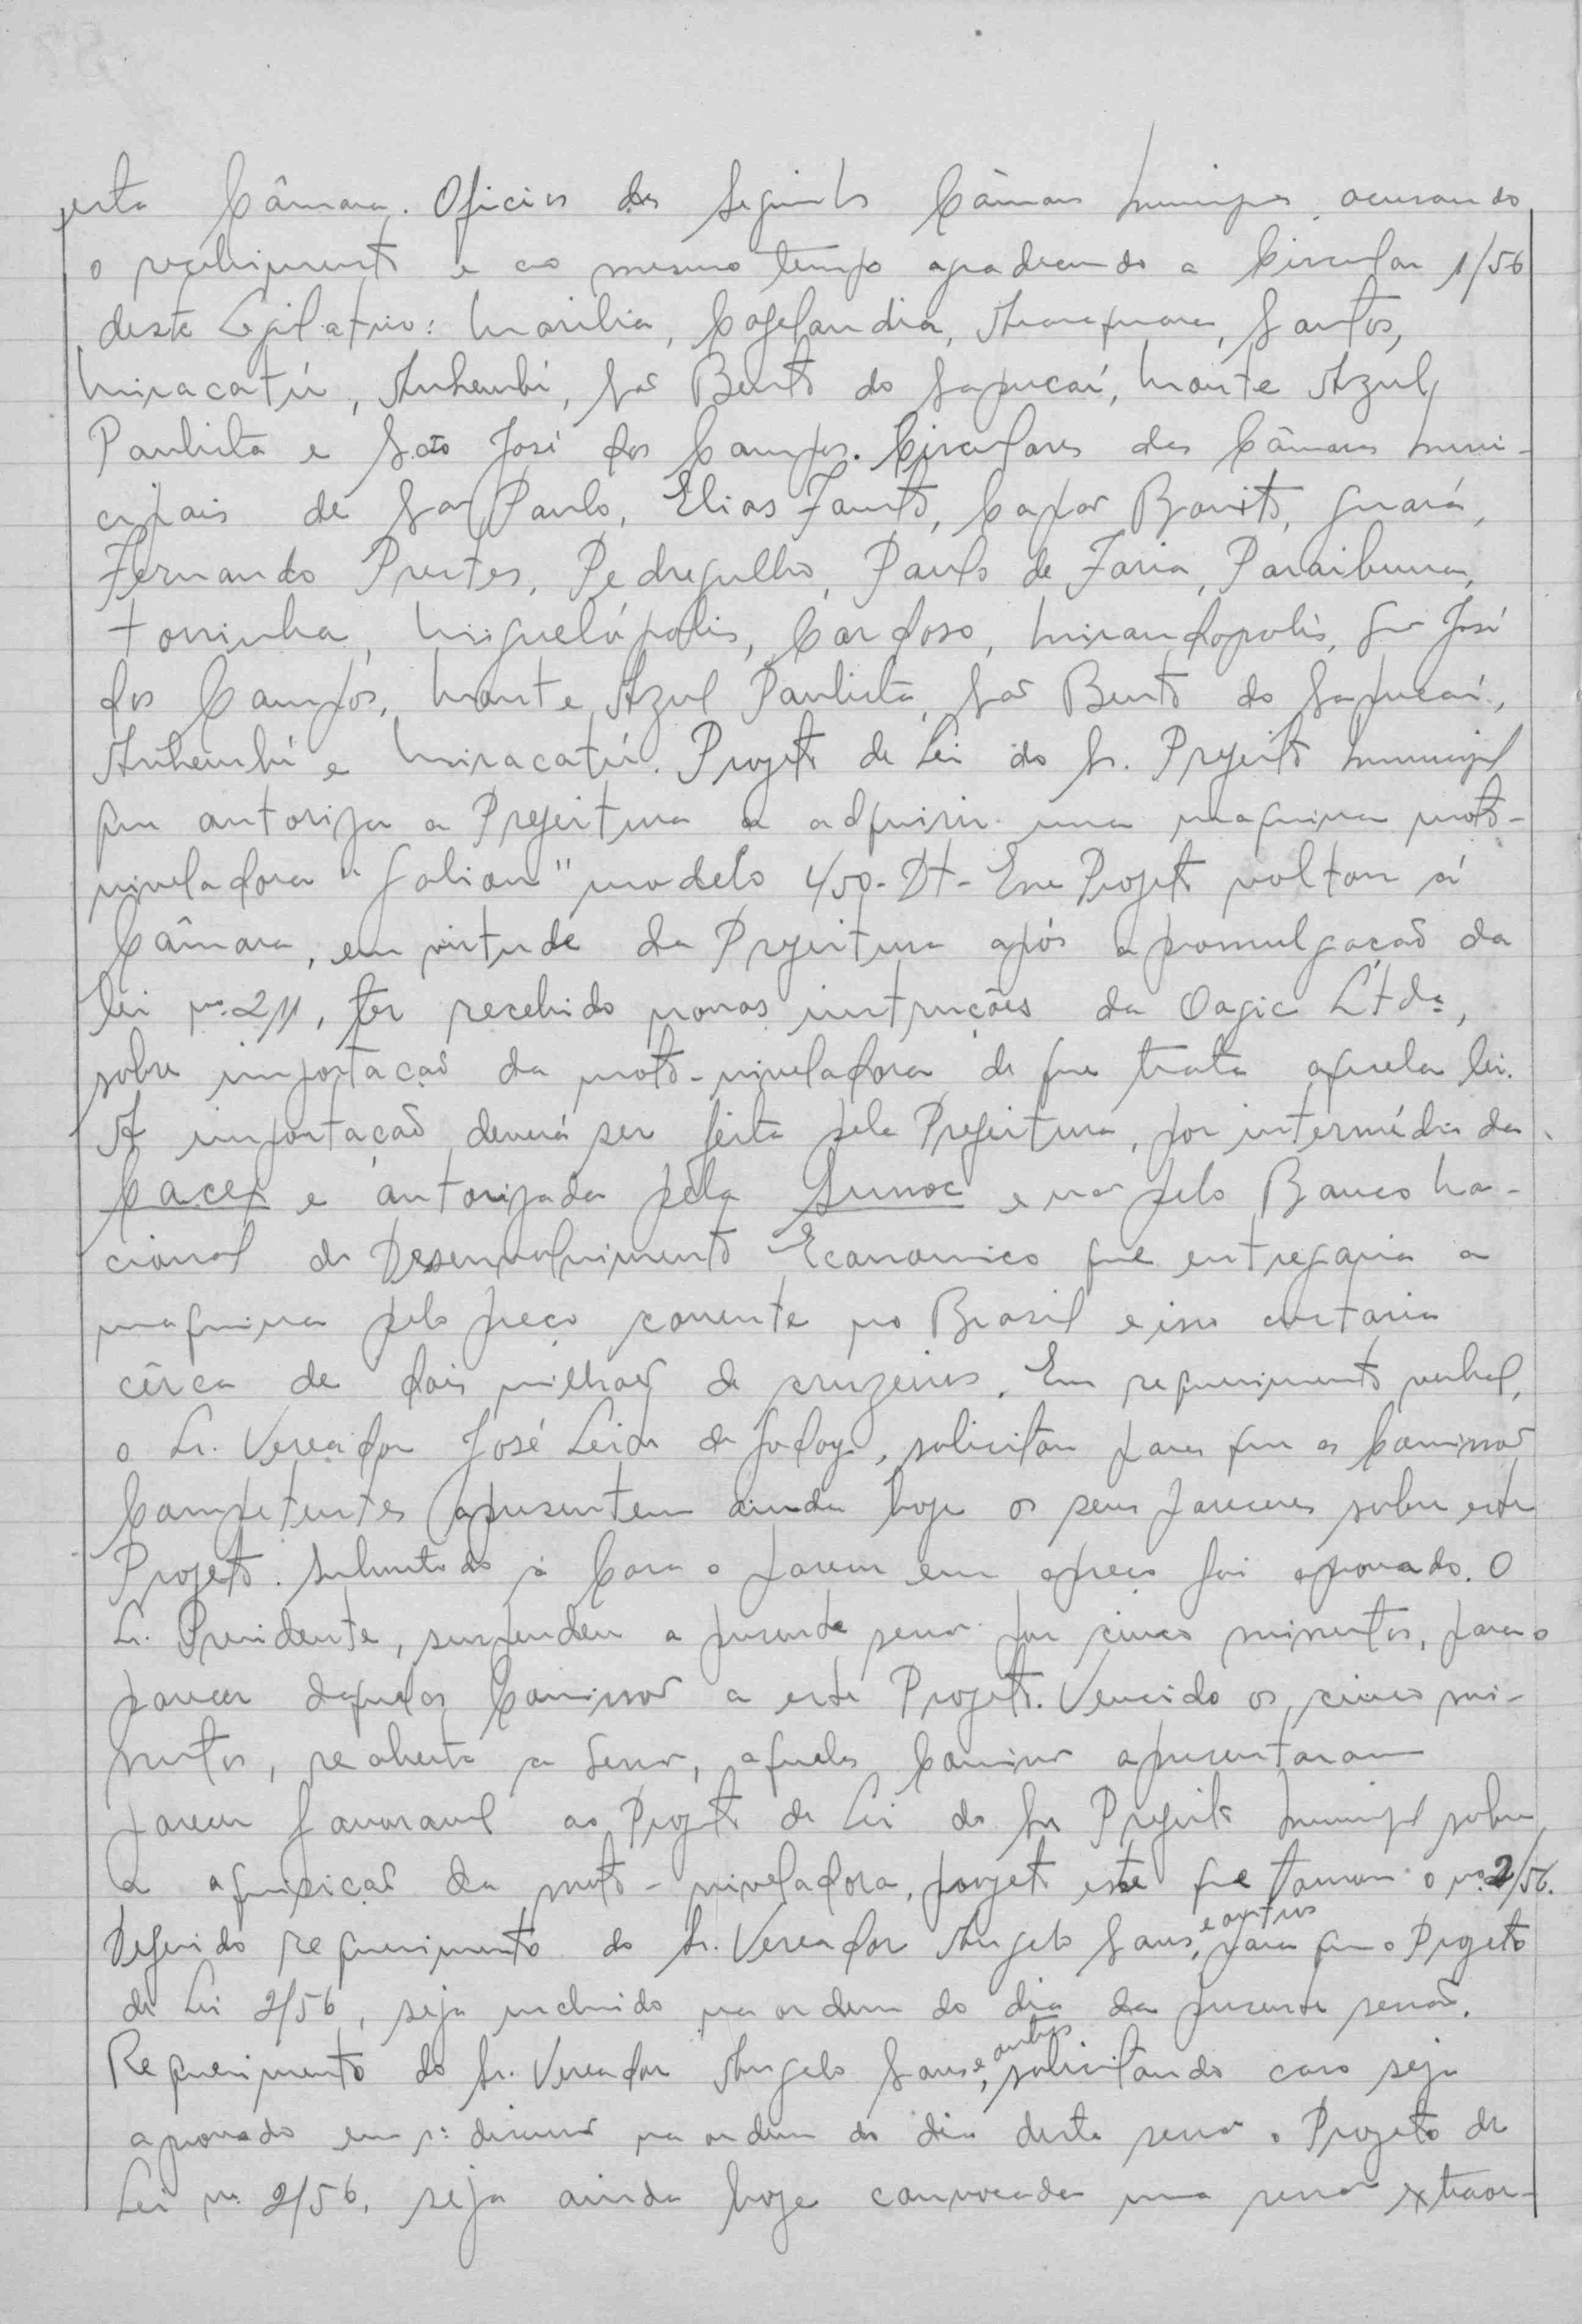 esta Câmara. Oficios das seguintes Câmaras Municipais acusando
o recebimento e ao mesmo tempo agradecendo a Circular 1/56
deste Legislativo: Marilia, Cafelandia, Araraquara, Santos,
Miracatú, Anhembí, São Bento do Sapucaí, Monte Azul
Paulista e São José dos Campos. Circulares das Câmaras Muni-
cipais de São Paulo, Elias Fausto, Capão Bonito, Guará,
Fernando Prestes, Pedregulho, Paulo de Faria, Paraibuna,
Torrinha, Miguelópolis, Cardoso, Mirandopolis, São José
dos Campos, Monte Azul Paulista, São Bento do Sapucaí,
Anhembí e Miracatú. Projeto de Lei do Sr. Prefeito Municipal
que autoriza a Prefeitura a adquirir uma maquina moto-
niveladora "Galion" modelo 450-Dt- Esse Projeto voltou á
Câmara, em virtude da Prefeitura após a promulgação da
lei nº 211, ter recebido novas instruções da Oagic Ltda,
sobre importação da moto-niveladora de que trata aquela lei.
A importação deverá ser feita pela Prefeitura, por intermédio da
Cacex e autorizada pela Sumoc e não pelo Banco Na-
cional de Desenvolvimento Economico que entregaria a
maquina pelo preço corrente no Brasil e isso custaria
cêrca de dois milhões de cruzeiros. Em requerimento verbal,
o Sr. Vereador José Leida de Godoy, solicitou para que as Comissões
Competentes apresentem ainda hoje os seus pareceres sobre este
Projeto. Submetido á Casa o parecer em apreço foi aprovado. O
Sr. Presidente, suspendeu a presente sessão por cinco minutos, para o
parecer daquelas Comissões a este Projeto. Vencido os cinco mi-
nutos, reaberta a Sessão, aquelas Comissões apresentaram
parecer favoravel ao Projeto de Lei do Sr Prefeito Municipal sobre
a aquisição da moto-niveladora, projeto este que tomou o nº 2/56.
Deferido requerimento do Sr. Vereador Angelo Sans, e outros para que o Projeto
de Lei 2/56, seja incluido na ordem do dia da presente sessão.
Requerimento do Sr. Vereador Angelo Sans e outros, solicitando caso seja
aprovado em 1ª discussão na ordem do dia desta sessão o Projeto de
Lei nº 2/56, seja ainda hoje convocada uma sessão extraor-